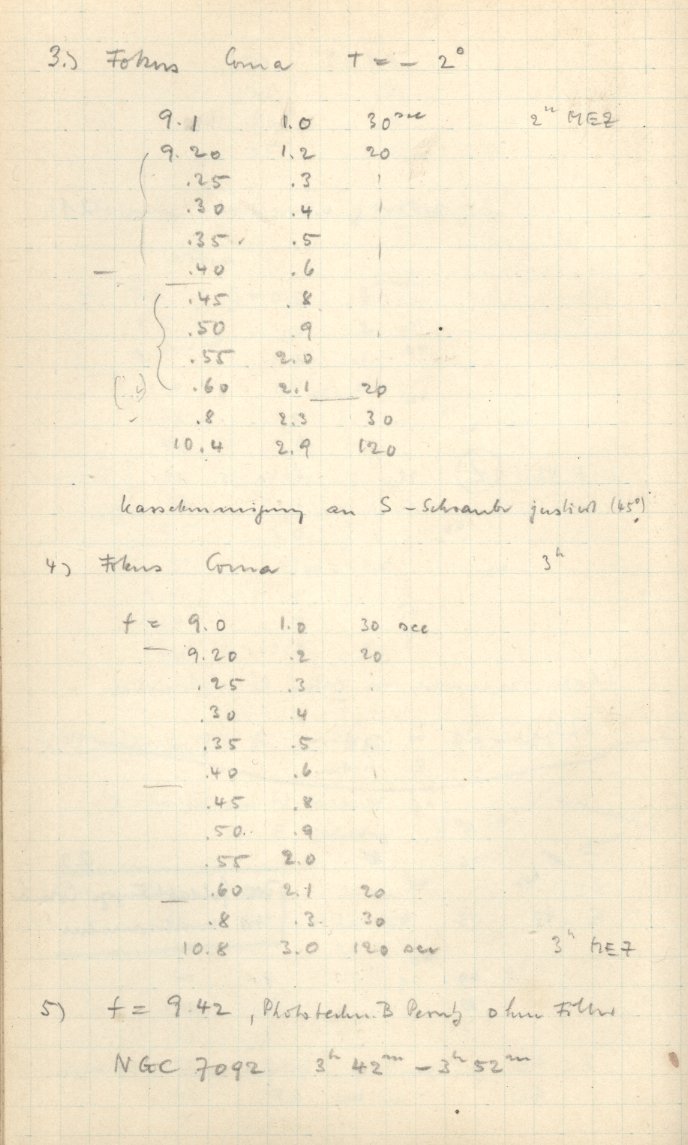 3.) Fokus Coma T = - 2°
9.1 1.0 30 sec 2h MEZ
9.20 1.2 20
.25 .3
.30 .4
.35 .5
.40 .6
.45 .8
.50 .9
.55 2.0
.60 2.1 20
.8 2.3 30
10.4 2.9 120
an S-Schraube justiert (45°)
4) Fokus Coma 3h
f = 9.0 1.0 30 sec
9.20 .2 20
.25 .3
.30 .4
.35 .5
.40 .6
.45 .8
.50 .9
.55 2.0
.60 2.1 20
.8 .3 30
10.8 3.0 120 sec 3h MEZ
5) f = 9.42, Phototechn. B Perutz ohne Filter
NGC 7092 3h 42m - 3h 52m